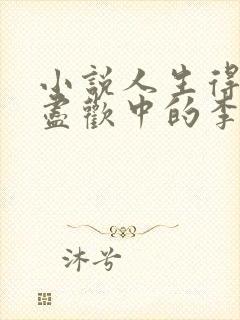 小説人生得
盡歡中的李
沐兮